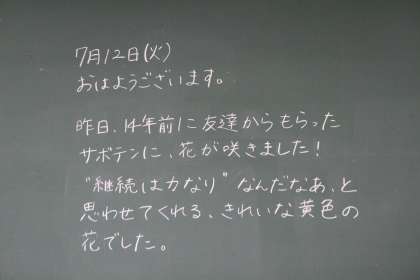 7月12日(火)
おはようございます。
昨日、14年前に友達からもらった
サボテンに、花が咲きました！
"継続は力なり"なんだなあ、と
思わせてくれる、きれいな黄色の
花でした。